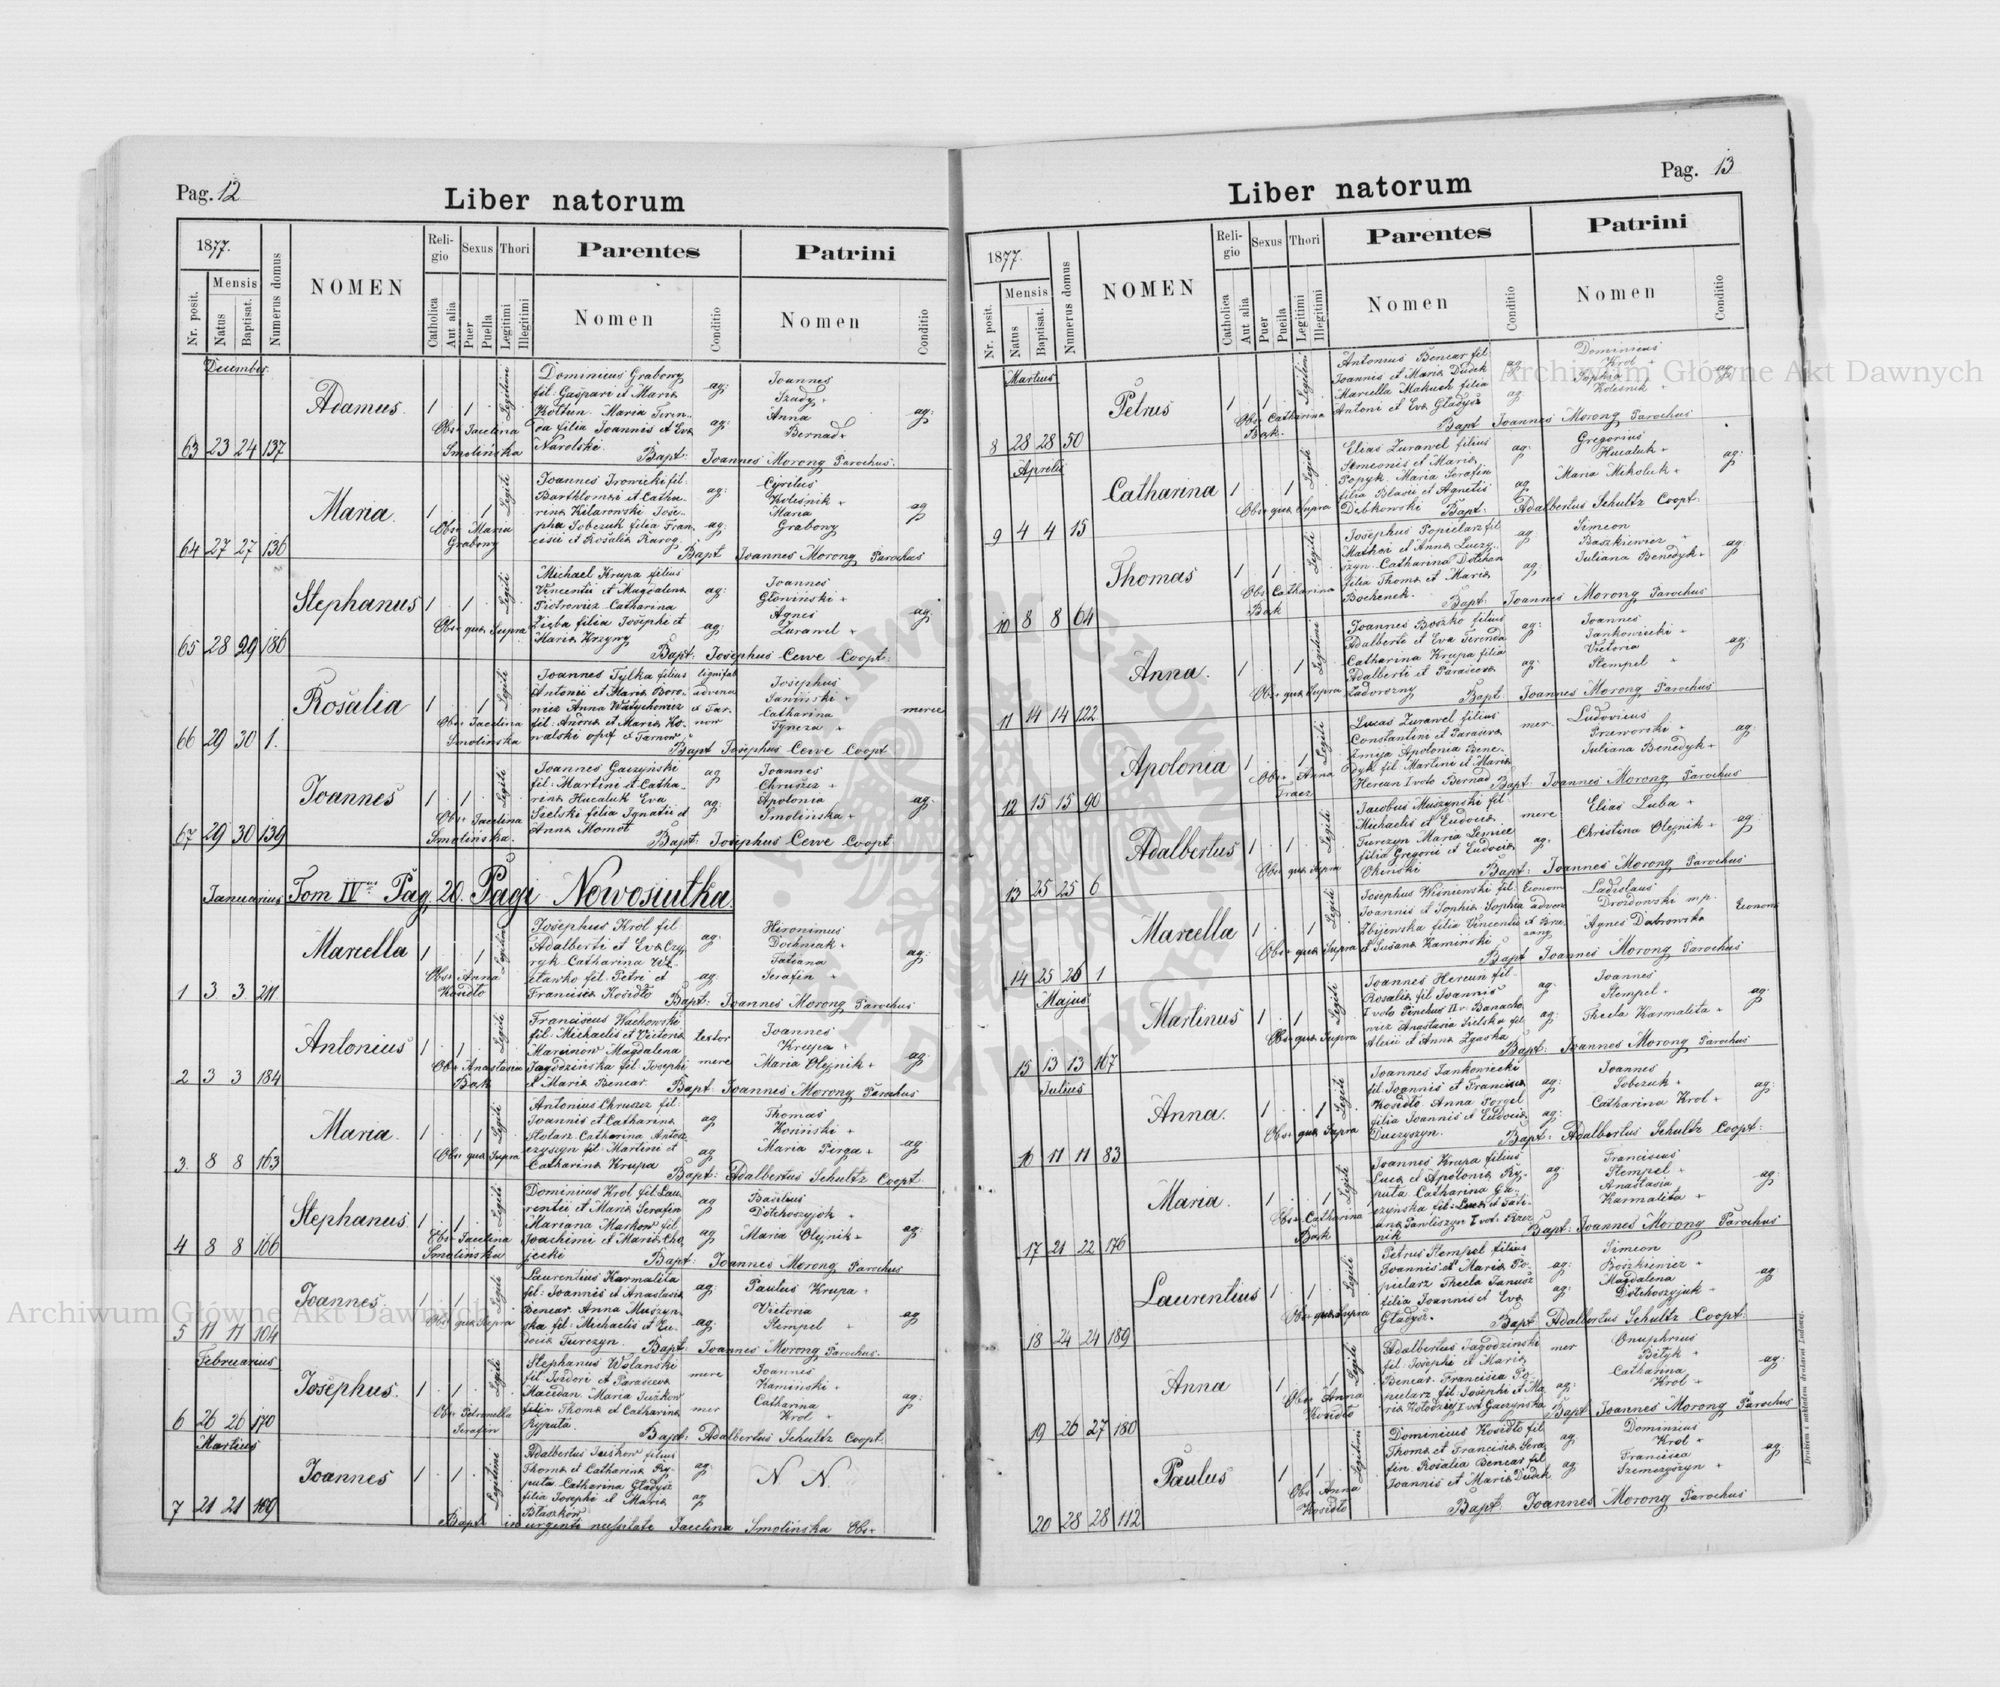 Pag. 12
Liber natorum
1877.
Nr. posit.
Mensis
Natus
Baptisat.
Numerus domus
NOMEN
Religio
Catholica
Aut alia
Sexus
Puer
Puella
Thori
Legitimi
Illegitimi
Parentes
Nomen
Conditio
Patrini
Nomen
Conditio
December
63 23 24 137
Adamus.
1 1
Legitimi
Obs. Jacelina
Smolińska
Dominicus Grabowy
fil. Gaspari et Maria
Kołtun. Maria Feren-
filia Joannis et Eva
Narolski.
ag:
ag:
Joannes
Szudy +
Anna
Bernad +
ag:
Bapt: Joannes Morong Parochus.
64 27 27 136
Maria.
1 1
Legiti
Obs. Maria
Grabowy
Joannes
fil:
et Catha-
rina
Jose-
pha Sobczuk filia Fran-
cisii et Rosalia Karog
ag:
ag:
Cyrilus
Kolesnik +
Maria
Grabowy
ag
Bapt Joannes Morong Parochus
65 28 29 186
Stephanus
1 1
Legiti
Obs. qua Supra
Michael Krupa filius
Vincentii et Magdalena
Piotrowicz Catharina
Zięba filia Josephi et
Maria Krzywy
ag:
ag:
Joannes
Głowiński +
Agnes
Żurawel +
ag:
Bapt: Josephus Cewe Coopt:
66 29 30 1.
Rosalia
1 1
Legiti
Obs. Jacelina
Smolińska
Joannes Tylka filius
Antonii et Maria Boro-
wicz Anna
fil: Andrea et Maria Ko-
walski
advena
Tar-
now
Josephus
Janiński +
Catharina
Tyncza +
merce
Bapt Josephus Cewe Coopt
67 29 30 139
Joannes
1 1
Legiti
Obs. Jacelina
Smolińska.
Joannes Gaczyński
fil: Martini et Catha-
rina Hucaluk Eva
Szelski filia Ignatii et
Anna Momot
ag
ag:
Joannes
Chruszcz +
Apolonia
Smolińska +
ag:
Bapt: Josephus Cewe Coopt
Januarius
Tom IV Pag. 20. Pagi Nowosiutka.
1 3 3 211
Marcella
1 1
Obs. Anna
Kosidło
Josephus Król fil
Adalberti et Eva Czy-
ryk. Catharina
fil: Petri et
Francisca Kosidło
ag:
ag:
Hieronimus
Dochniak +
Tatiana
Serafin +
ag:
Bapt: Joannes Morong Parochus
2 3 3 184
Antonius
1 1
Legiti
Obs. Anastasia
Bak
Franciscus Wachowski
fil: Michaelis et Victoria
Marcinow Magdalena
Jagodzińska fil: Josephi
et Maria Bencar.
textor
mere
Joannes
Krupa +
Maria Olejnik +
ag:
Bapt: Joannes Morong Parochus
3. 8 8 163
Maria.
1 1
Legiti
Obs. qua Supra
Antonius Chruszcz fil:
Joannis et Catharina
Stolarz Catharina Antos-
czyszyn fil: Martini et
Catharina Krupa
ag
ag
Thomas
Koniński +
Maria Pirga +
ag
Bapt: Adalbertus Schultz Coopt
4 8 8 166
Stephanus
1 1
Legiti
Obs. Jacelina
Smolińska
Dominicus Krol fil: Lau-
rentii et Maria Serafin
Mariana Markow fil:
Joachimi et Maria Cho-
jecki
ag
ag
Basilius
Dołchoszyjok +
Maria Olejnik +
ag:
Bapt: Joannes Morong Parochus
5 11 11 104
Joannes
1 1
Legiti
Obs. qua Supra
Laurentius Karmalita
fil: Joannis et Anastasia
Bencar. Anna Muszyn-
ska fil: Michaelis et Eu-
docia Turczyn
ag:
ag:
Paulus Krupa +
Victoria
Stempel +
ag
Bapt: Joannes Morong Parochus.
Februarius
6 26 26 170
Josephus.
1 1
Legiti
Obs. Petronella
Serafin
Stephanus Wolański
fil: Isidori et Parasceva
Macedan. Maria Juskow
filia Thoma et Catharina
Ryputa.
mere
mer
Joannes
Kamiński +
Catharina
Krol +
ag:
Bapt: Adalbertus Schultz Coopt.
Martius
7 21 21 169
Joannes
1 1
Legitimi
Adalbertus Juskow filius
Thoma et Catharina Ry-
puta. Catharina Gladysz
filia Josephi et Maria
Błaszków
ag:
ag
N N.
Bapt in urgenti necessitate Jacelina Smolińska Obs.
Pag. 13
Liber natorum
1877.
Nr. posit.
Mensis
Natus
Baptisat.
Numerus domus
NOMEN
Religio
Catholica
Aut alia
Sexus
Puer
Puella
Thori
Legitimi
Illegitimi
Parentes
Nomen
Conditio
Patrini
Nomen
Conditio
Martius
8 28 28 50
Petrus
1 1
Legitimi
Obs. Catharina
Bak.
Antonius Bencar fil:
Joannis et Maria Dudek
Marcella Makuch filia
Antoni et Eva Gładysz
ag
ag:
Dominicus
Krol +
Sophia
Kolesnik +
ag
Bapt Joannes Morong Parochus
Aprilis
9 4 4 15
Catharina
1 1
Legiti
Obs. qua Supra
Elias Zurawel filius
Simeonis et Maria
Popyk. Maria Serafin
filia Blasii et Agnetis
Debkowski
ag:
ag
Gregorius
Hucaluk +
Maria Mikoluk +
ag:
Bapt: Adalbertus Schultz Coopt:
10 8 8 64
Thomas
1 1
Legiti
Obs Catharina
Bak
Josephus Popielarz fil
Mathei et Anna Luczy-
szyn. Catharina
filia Thoma et Maria
Bochenek.
ag
ag:
Simeon
Baszkiewicz +
Juliana Benedyk +
ag:
Bapt: Joannes Morong Parochus
11 14 14 122
Anna.
1 1
Legitimi
Obs. qua Supra
Joannes Bosko filius
Adalberti et Eva Ferenda
Catharina Krupa filia
Adalberti et Parasceva
Zadorozny
ag:
ag:
Joannes
Jankowiecki +
Victoria
Stempel +
ag:
Bapt: Joannes Morong Parochus
12 15 15 90
Apolonia
1 1
Legiti
Obs. Anna
Tracz
Lucas Zurawel filius
Constantini et Parasceva
Zmija Apolonia Bene-
dyk fil: Martini et Maria
Hercun I voto Bernad
mer.
Ludovicus
Przeworski +
Juliana Benedyk +
ag:
Bapt: Joannes Morong Parochus
13 25 25 6
Adalbertus
1 1
Legiti
Obs. qua Supra
Jacobus Muszynski fil:
Michaelis et Eudocia
Turczyn Maria
filia Gregorii et Eudocia
mere
ag.
Elias Luba +
Christina Olejnik +
ag:
Bapt: Joannes Morong Parochus
14 25 26 1
Marcella
1 1
Legiti
Obs. qua Supra
Josephus Wisniewski fil:
Joannis et Sophia. Sophia
Zbijewska filia Vincentii
et Susana Kamiński
Econom
advena
et Brze-
zany
Ladislaus
Drozdowski mp.
Agnes Dabrowska
Econom
Bapt Joannes Morong Parochus
Majus
15 13 13 167
Martinus
1 1
Legiti
Obs. qua Supra
Joannes Hercun fil:
Rosalia fil Joannis
I voto Pinchus II v. Banacho-
wicz Anastasia Sielska fil
Alexii et Anna Zgaska
ag:
ag:
Joannes
Stempel +
Thecla Karmalita +
ag:
Bapt: Joannes Morong Parochus
Julius
16 11 11 83
Anna.
1 1
Legiti
Obs. qua Supra
Joannes Jankowiecki
fil Joannis et Francisca
Kosidło Anna
filia Joannis et Eudocia
Duczyszyn.
ag:
ag:
Joannes
Sobczuk +
Catharina Krol +
ag:
Bapt: Adalbertus Schultz Coopt:
17 21 22 176
Maria.
1 1
Legiti
Obs. Catharina
Bak
Joannes Krupa filius
Luca et Apolonia Ry-
puta Catharina Ga-
czyńska fil: Luca et Tati-
ana Pawliszyn I vot:
nik
ag:
ag
Franciscus
Stempel +
Anastasia
Karmalita +
ag:
Bapt: Joannes Morong Parochus
18 24 24 189
Laurentius
1 1
Legiti
Obs. qua Supra
Petrus Stempel filius
Joannis et Maria Po-
pielarz Thecla Janusz
filia Joannis et Eva
Gladysz.
ag:
ag:
Simeon
Boszkiewicz +
Magdalena
Dołchoszyjuk +
ag:
Bapt: Adalbertus Schultz Coopt:
19 26 27 180
Anna
1 1
Legiti
Obs. Anna
Kosidło
Adalbertus Jagodzinski
fil: Josephi et Maria
Bencar. Francisca Po-
pielarz fil: Josephi et Ma-
ria Kołodziej I vot Gaczynska
mer
ag:
Onuphrius
Bityk +
Catharina
Krol +
ag:
Bapt Joannes Morong Parochus
20 28 28 112
Paulus
1 1
Legitimi
Obs Anna
Kosidło
Dominicus Kosidło fil
Thoma et Francisca Sera-
fin. Rosalia Bencar fil
Joannis et Maria Dudek
ag
ag
Dominicus
Krol +
Francisca
Szemezszyn +
ag
Bapt: Joannes Morong Parochus
Archiwum Główne Akt Dawnych
Archiwum Główne Akt Dawnych